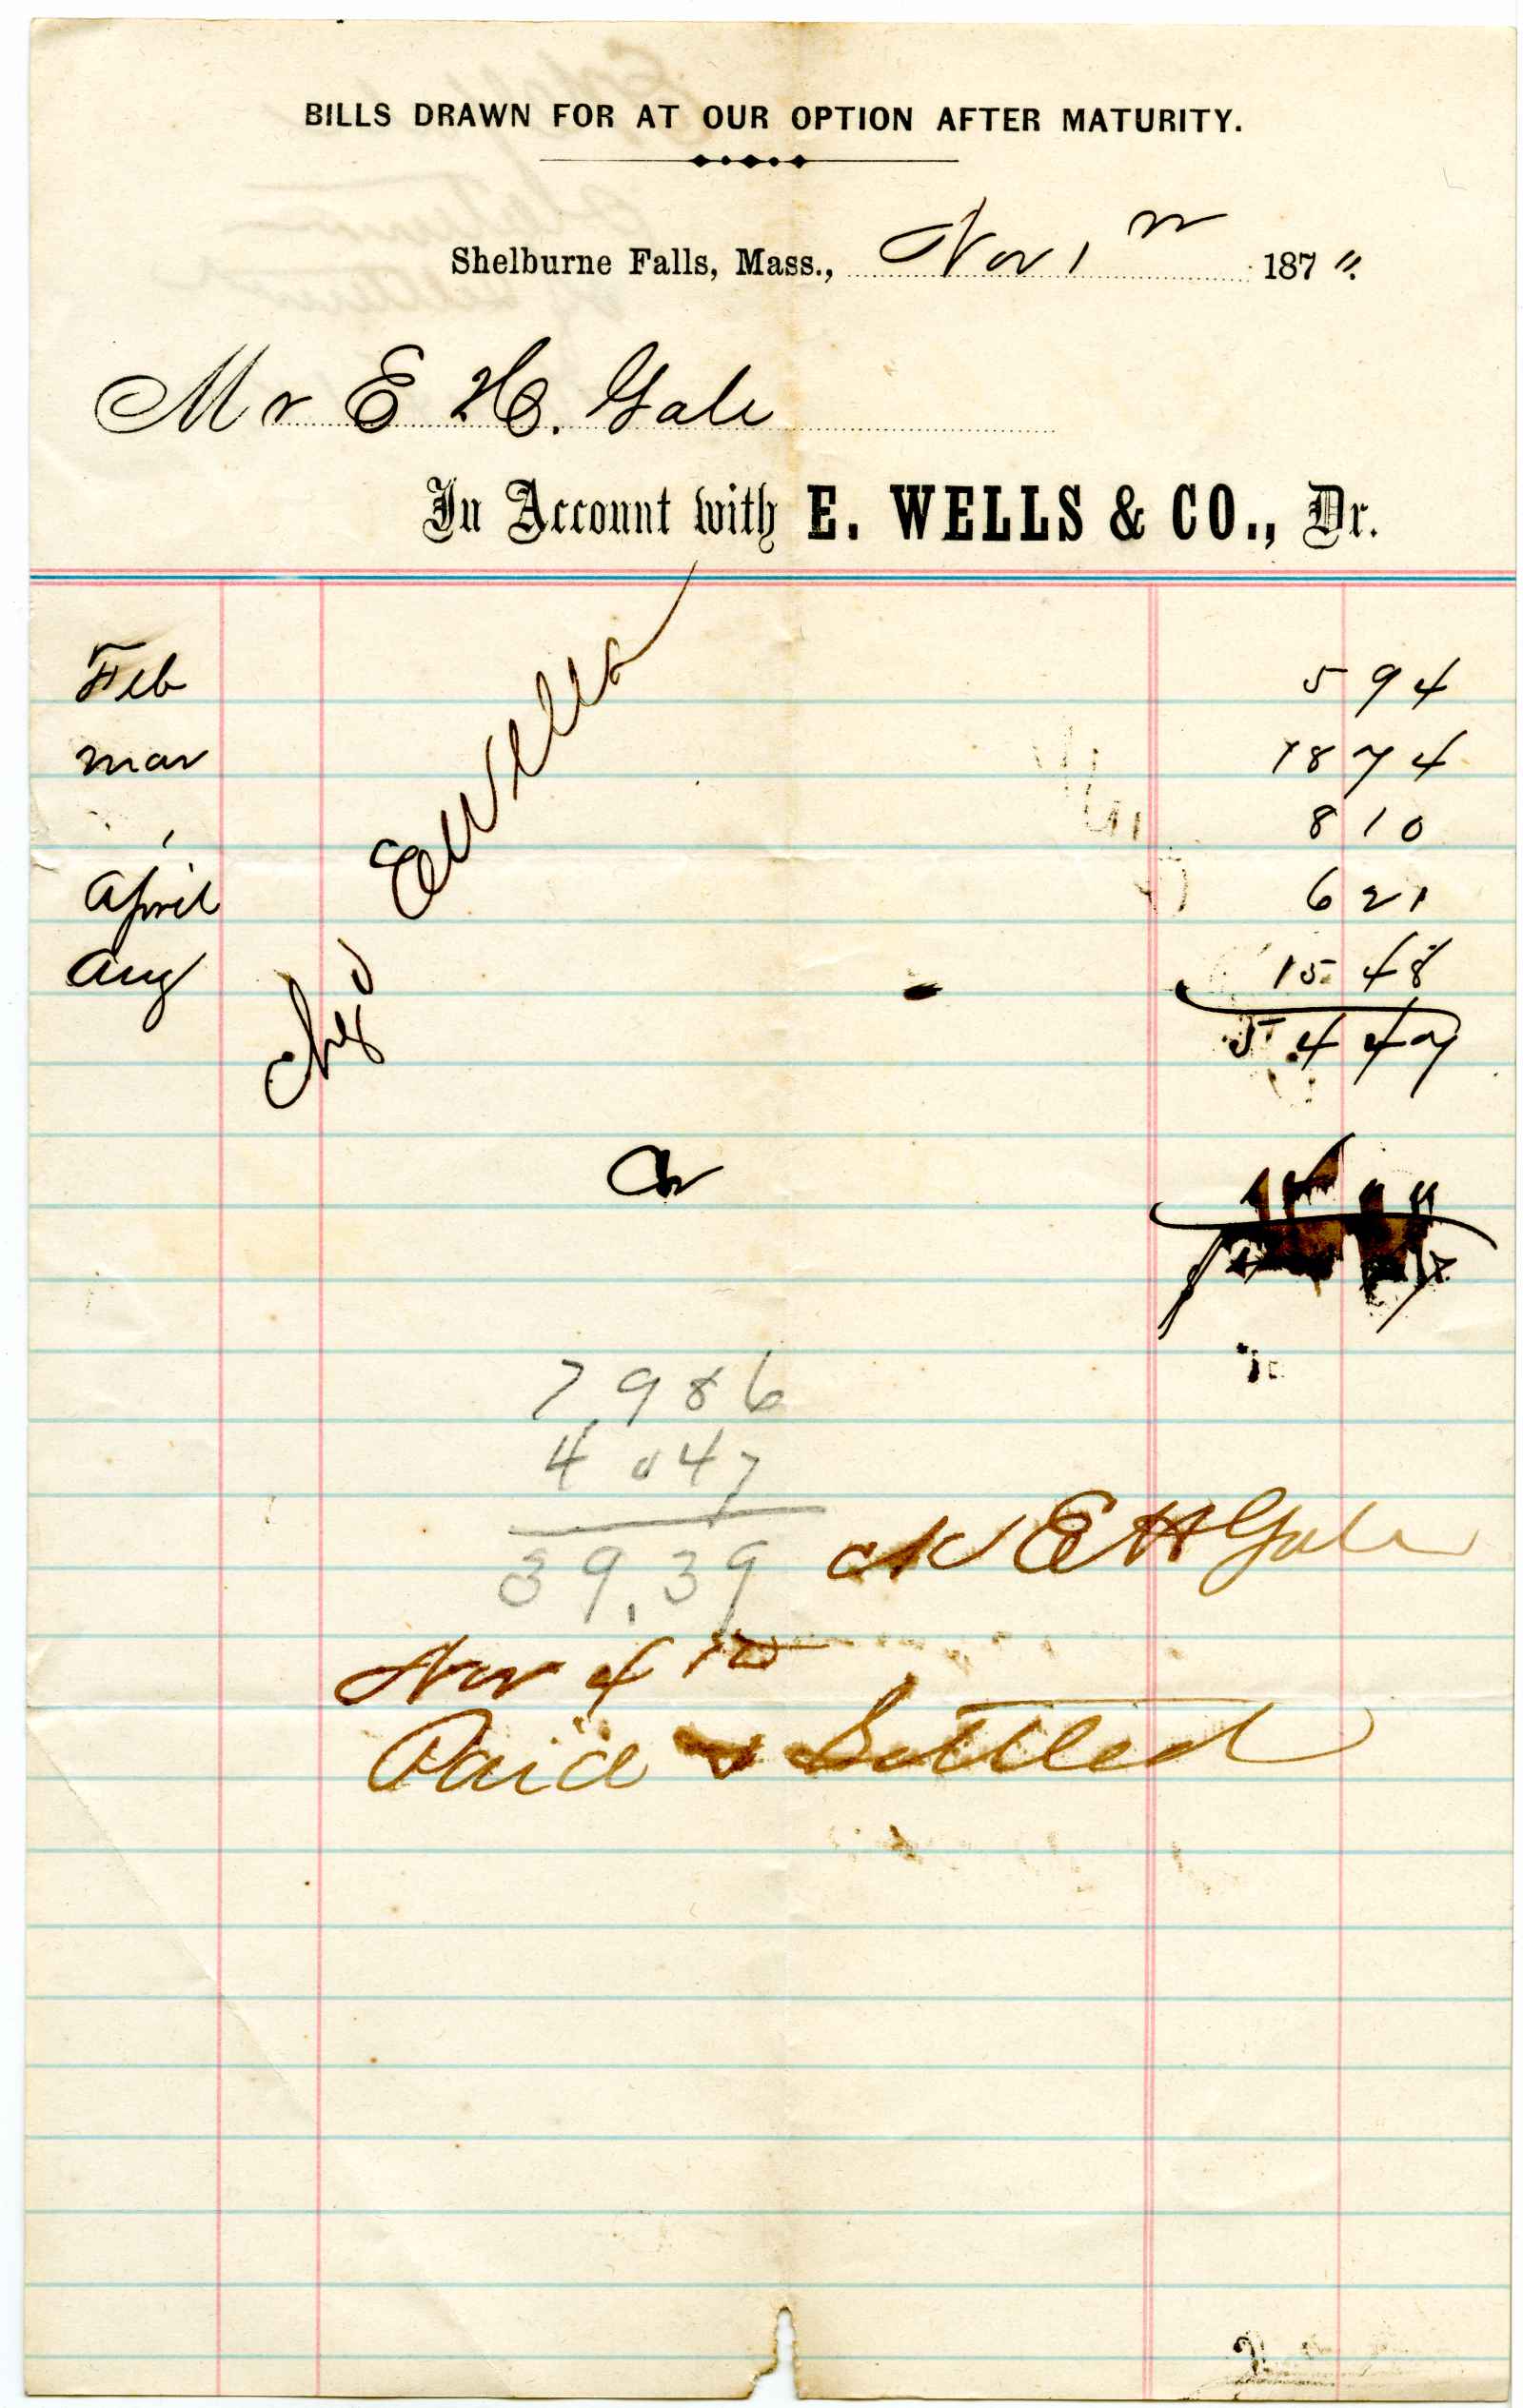 BILLS DRAWN FOR AT OUR OPTION AFTER MATURITY.
Shelburne Falls, Mass., Nov 1 187 "
Mr E H. Gale
In Account with E. WELLS & CO., Dr.
Feb 5 94
Mar 18 74
" 8 10
April 6 21
Aug 15 48
54 47
Chgd E Wells
Cr
7,986
4 047
39.39
E H Gale
Nov 4th
Paid & Settled